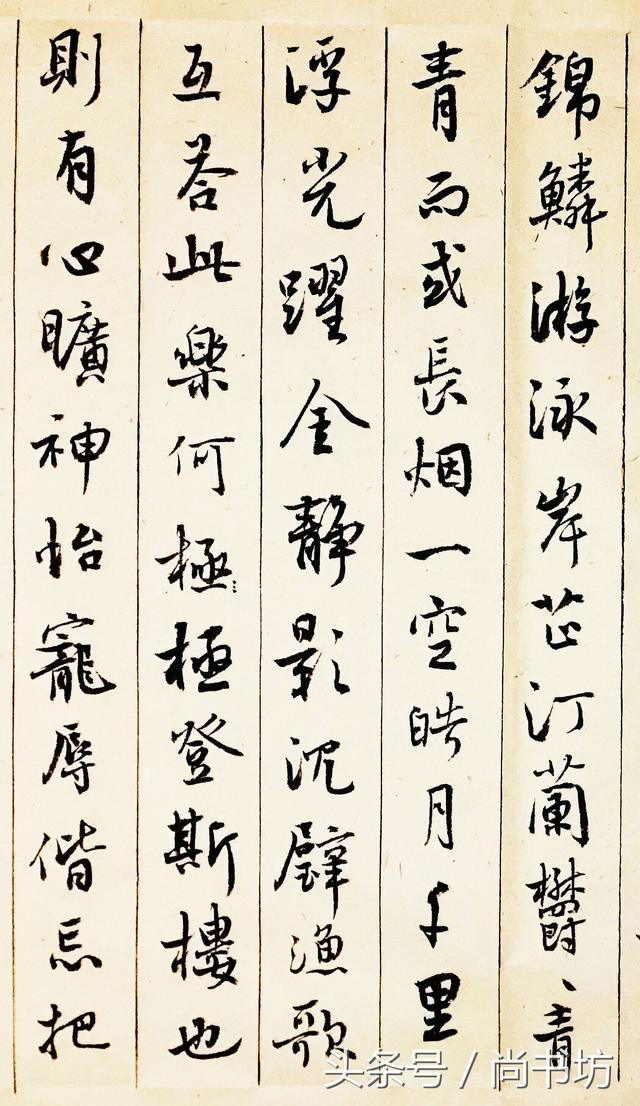 錦鱗游泳岸芷汀蘭鬱、青
青而或長烟一空皓月千里
浮光躍金静影沉璧漁歌
互荅此樂何極極登斯樓也
則有心曠神怡寵辱偕忘把
头条号 / 尚书坊